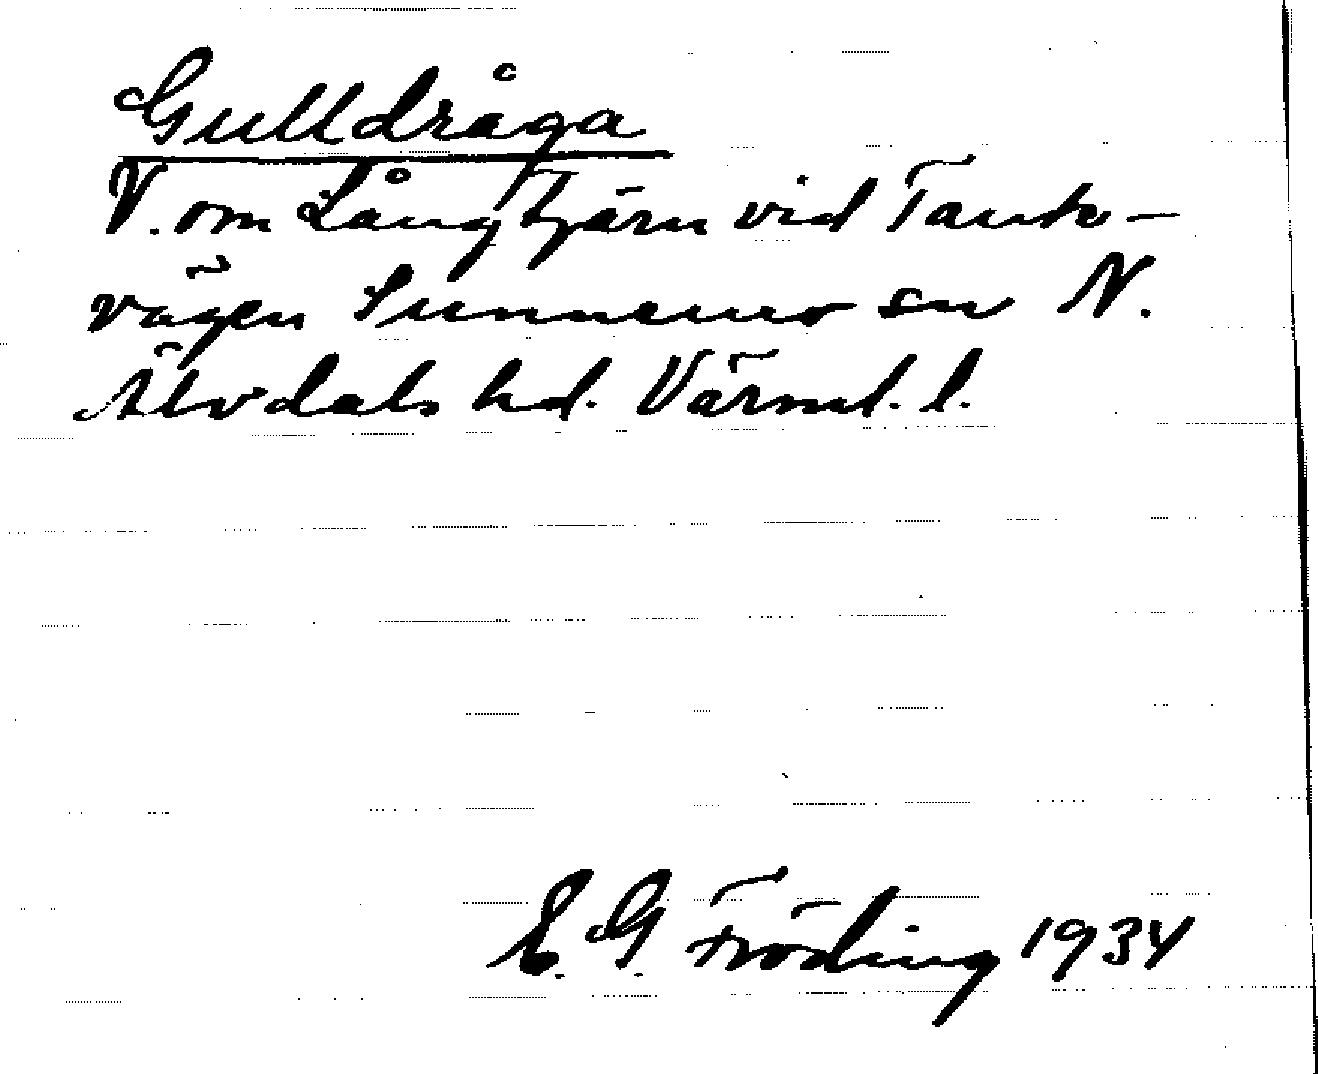 Gulldråga
V. om Långtjärn vid Tank-
vägen Sunnemo sn N.
Älvdals hd. Värml. l.
E. G. Fröding 1934